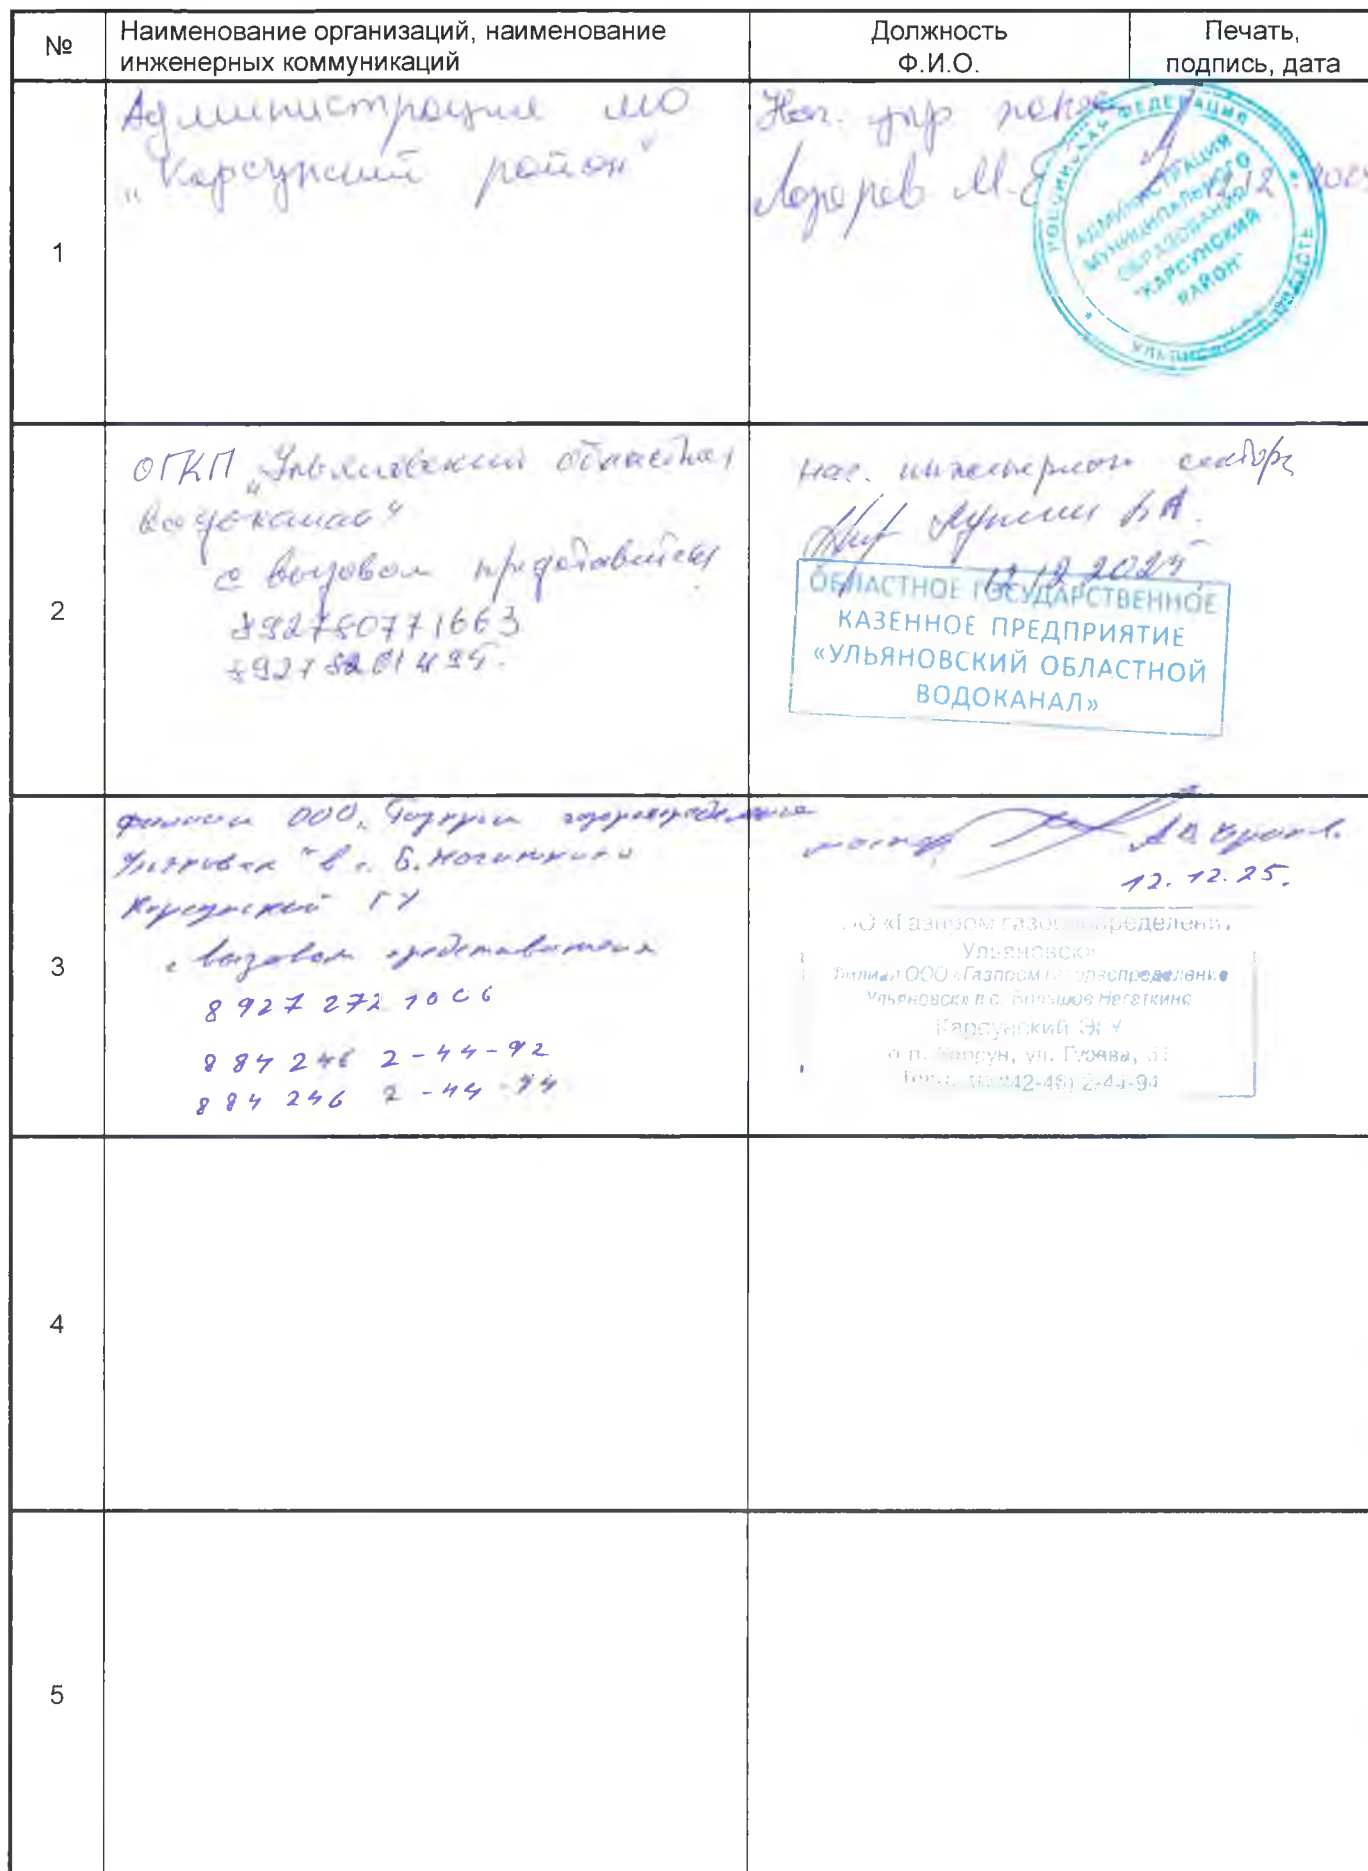 №
Наименование организаций, наименование
инженерных коммуникаций
Должность
Ф.И.О.
Печать,
подпись, дата
1
Администрация МО
"Карсунский район"
Нач.
Лазарев М.Е
12.12.202
РОССИЙСКАЯ ФЕДЕРАЦИЯ
УЛЬЯНОВСКАЯ ОБЛАСТЬ
АДМИНИСТРАЦИЯ
МУНИЦИПАЛЬНОГО
ОБРАЗОВАНИЯ
"КАРСУНСКИЙ
РАЙОН"
2
ОГКП "Ульяновский областной
водоканал"
с вызовом представителя
Нач. инженерного сектора
12.12.202
ОБЛАСТНОЕ ГОСУДАРСТВЕННОЕ
КАЗЕННОЕ ПРЕДПРИЯТИЕ
«УЛЬЯНОВСКИЙ ОБЛАСТНОЙ
ВОДОКАНАЛ»
3
филиал ООО "Газпром газораспределение
Ульяновск" в с. Б. Нагаткино
Карсунский ГУ
с вызовом представителя
8 927 272 10 06
8 84 246 2-44-92
8 84 246 2-44-94
мастер
12.12.25.
ООО «Газпром газораспределение
Ульяновск»
Филиал ООО «Газпром газораспределение
Ульяновск» в с. Большое Нагаткино
Карсунский ЭГУ
р.п. Карсун, ул. Гусева,
2-44-94
4
5